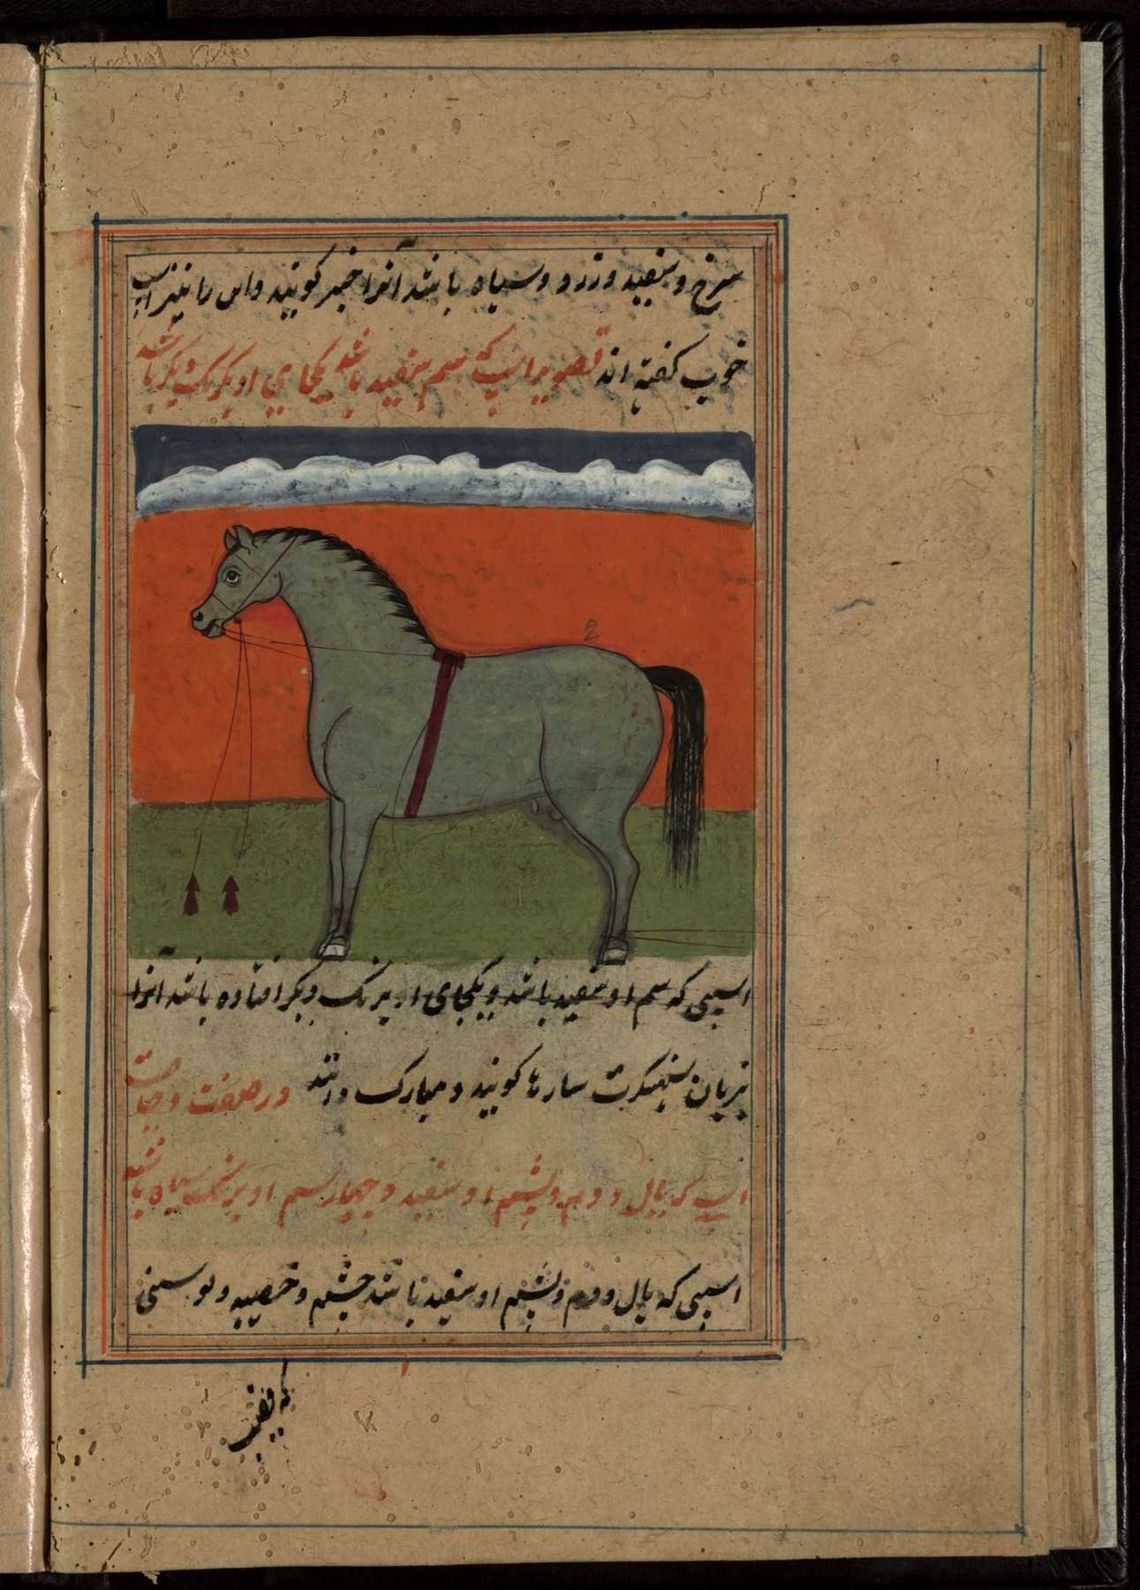 سرخ و سفید و زرد و سیاه باشد آنرا خبر گویند و این را نیز اسپ
خوب گفته اند تصویر اسپ که سم سفید باشد یکجای او برنگ دیگر باشد
اسپی که سم او سفید باشد و یکجای او برنگ دیگر افتاده باشد آنرا
بزبان سنسکرت سارنها گویند و مبارک دانند در صفت
اسپ که یال و دم و پشم او سفید و چهار سم او برنگ سیاه باشد
اسپی که یال و دم و پشم او سفید باشد چشم و خصیه و
که قضیب